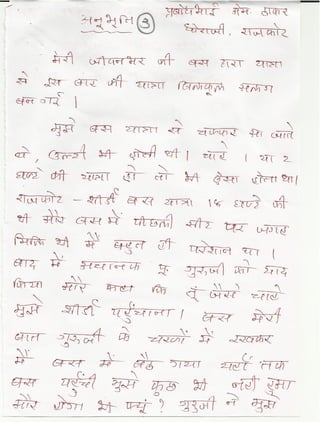 अनुभूति ③
प्रबोधभाई प्रेम ठाकर
धोराजी, राजकोट
मेरी जीवनभर की बस द्वारा यात्रा
से इस बार की यात्रा बिलकूल अलग
बन गई ।
मुझे बस यात्रा से चक्कर आ जाते
थे, उल्टी भी होती थी। चाहे 1 या 2
घण्टे की यात्रा हो तो भी ऐसा होता था।
राजकोट - शीर्डी बस यात्रा 15 घण्टे की
थी और बस में पीछली सीट पर जगह
मिलि थी में बहुत ही परेशान था।
बाद में अचानक पू गुरुजी को याद
किया और कहा कि तूँ जैसे चाहे
मुझे शीर्डी पहुँचाना। बस मेरी
बात गुरुजी के चरणों में रखकर
में बस में बैठ गया यहाँ तक
बस पहुँची मुझे कुछ भी नहीं हुआ
और होगा भी क्यूं ? गुरुजी ने मुझे